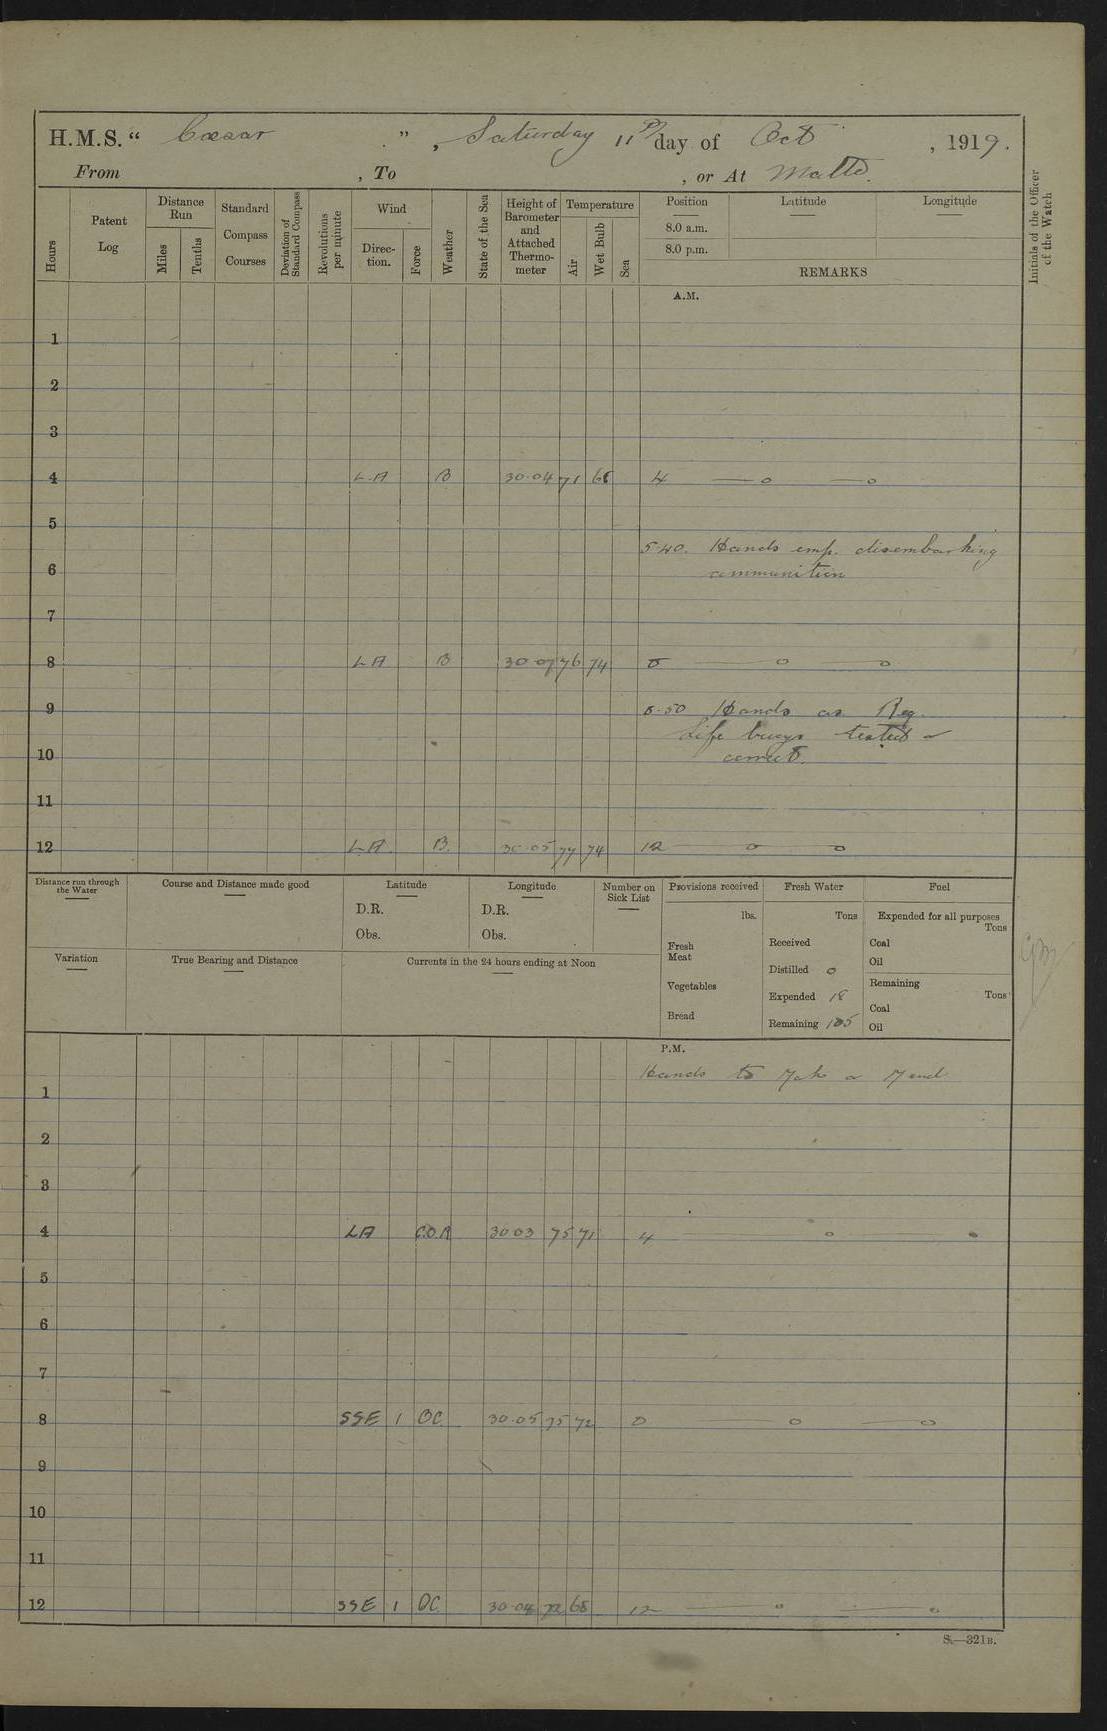 H.M.S. “ Cæsar ” , Saturday 11th day of Oct , 1919.
From , To , or At Malta.
Hours
Patent Log
Distance Run
Miles
Tenths
Standard Compass Courses
Deviation of Standard Compass
Revolutions per minute
Wind
Direction.
Force
Weather
State of the Sea
Height of Barometer and Attached Thermometer
Temperature
Air
Wet Bulb
Sea
Position
8.0 a.m.
8.0 p.m.
Latitude
Longitude
REMARKS
Initials of the Officer of the Watch
A.M.
1
2
3
4 L.A B 30.04 71 68 4 — o — o
5
5.40. Hands emp. disembarking
6 ammunition
7
8 LA B 30.07 76 74 8 — o — o
9 8.50 Hands as Req.
Life buoys tested &
10 correct.
11
12 L.A. B. 30.05 77 74 12 — o — o
Distance run through the Water
Course and Distance made good
Latitude
D.R.
Obs.
Longitude
D.R.
Obs.
Number on Sick List
Provisions received
lbs.
Fresh Meat
Vegetables
Bread
Fresh Water
Tons
Received
Distilled 0
Expended 18
Remaining 105
Fuel
Expended for all purposes
Tons
Coal
Oil
Remaining
Tons
Coal
Oil
Variation
True Bearing and Distance
Currents in the 24 hours ending at Noon
P.M.
Hands to Make & Mend
1
2
3
4 LA 30 03 75 71 4 — o — o
5
6
7
8 SSE 1 BC. 30.05 75 72 8 — o — o
9
10
11
12 SSE 1 BC. 30.04 72 68 12 — o — o
S.—321B.